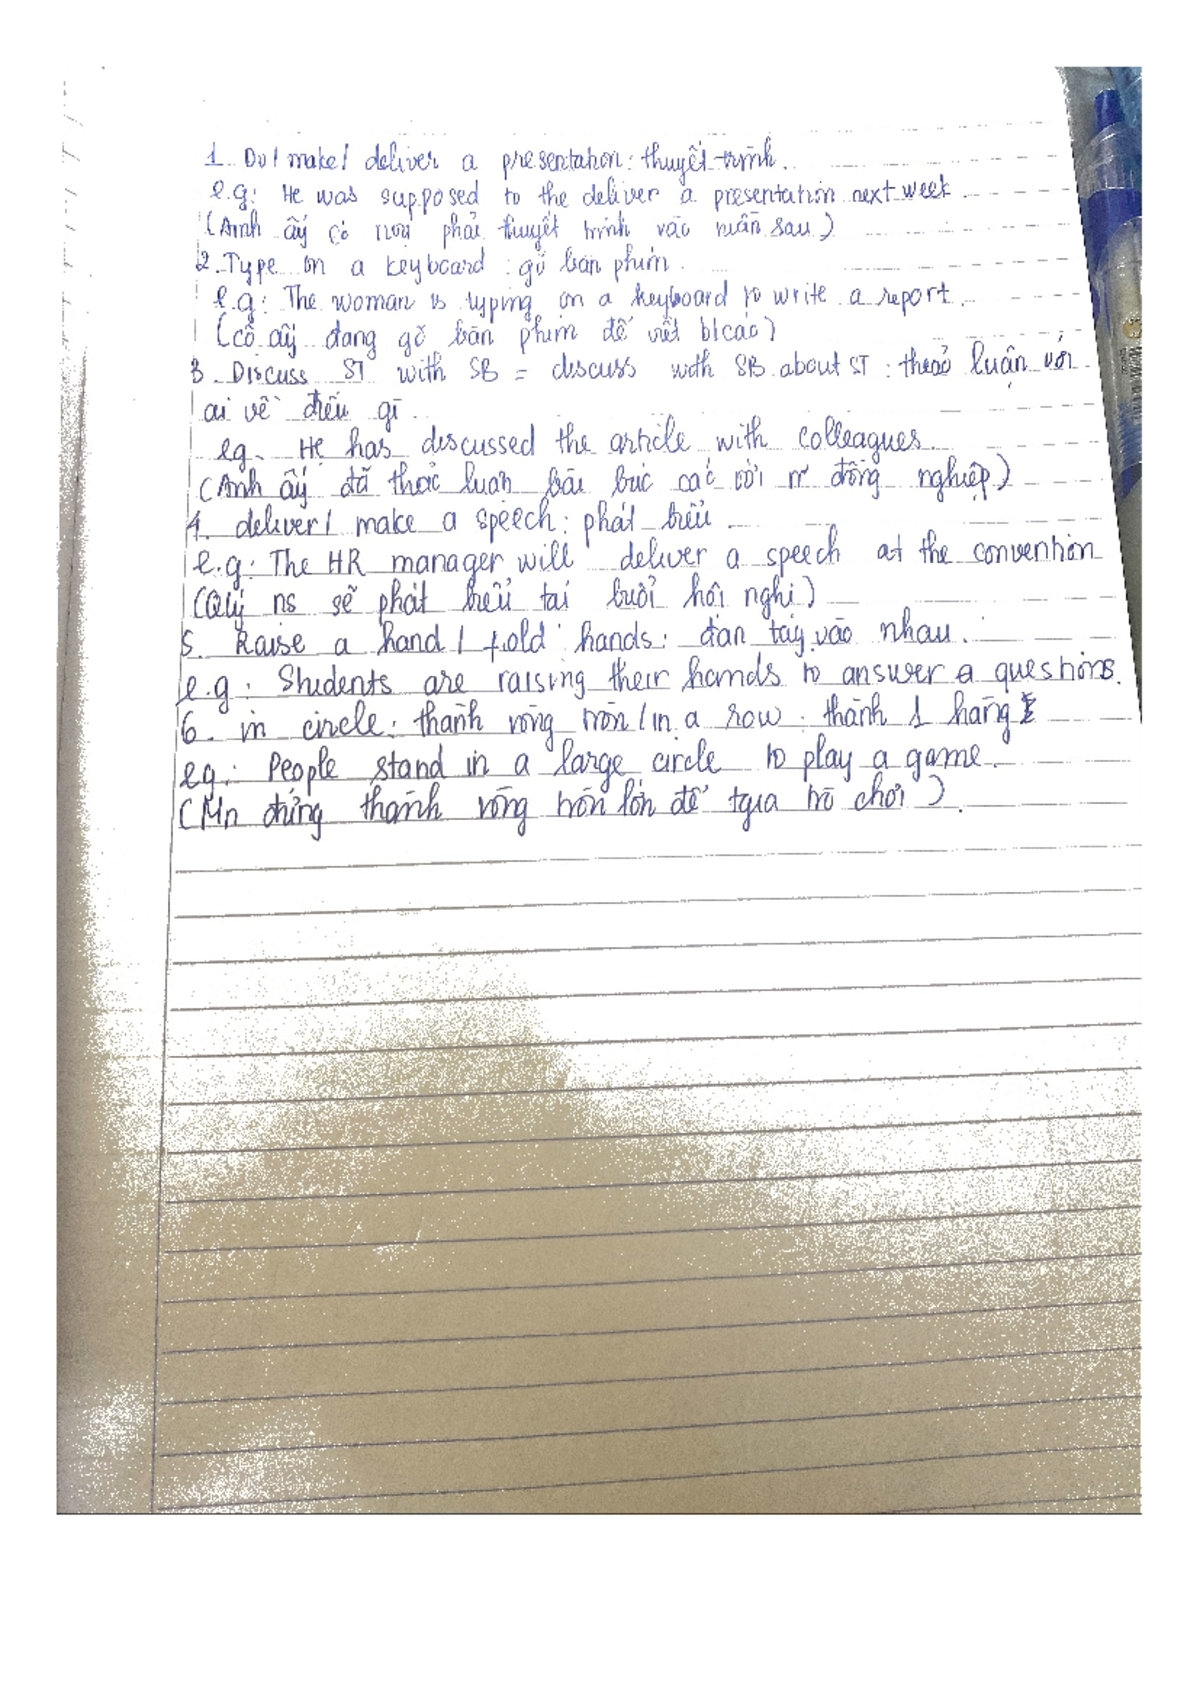 1. Do/ make/ deliver a presentation: thuyết trình.
e.g: He was supposed to the deliver a presentation next week.
(Anh ấy có phải thuyết trình vào tuần sau)
2. Type on a keyboard: gõ bàn phím.
e.g: The woman is typing on a keyboard to write a report.
(cô ấy đang gõ bàn phím để viết b/cáo)
3. Discuss ST with SB = discuss with SB about ST: thảo luận với
ai về điều gì.
eg. He has discussed the article with colleagues.
(Anh ấy đã thảo luận bài với đồng nghiệp)
4. deliver/ make a speech: phát biểu.
e.g: The HR manager will deliver a speech at the convention
(Qlý ns sẽ phát biểu tại buổi hội nghị)
5. Raise a hand / fold hands: đan tay vào nhau.
e.g: Students are raising their hands to answer a questions.
6. in circle: thành vòng tròn / in a row: thành 1 hàng
eg: People stand in a large circle to play a game.
(Mn đứng thành vòng tròn lớn để tgia trò chơi).